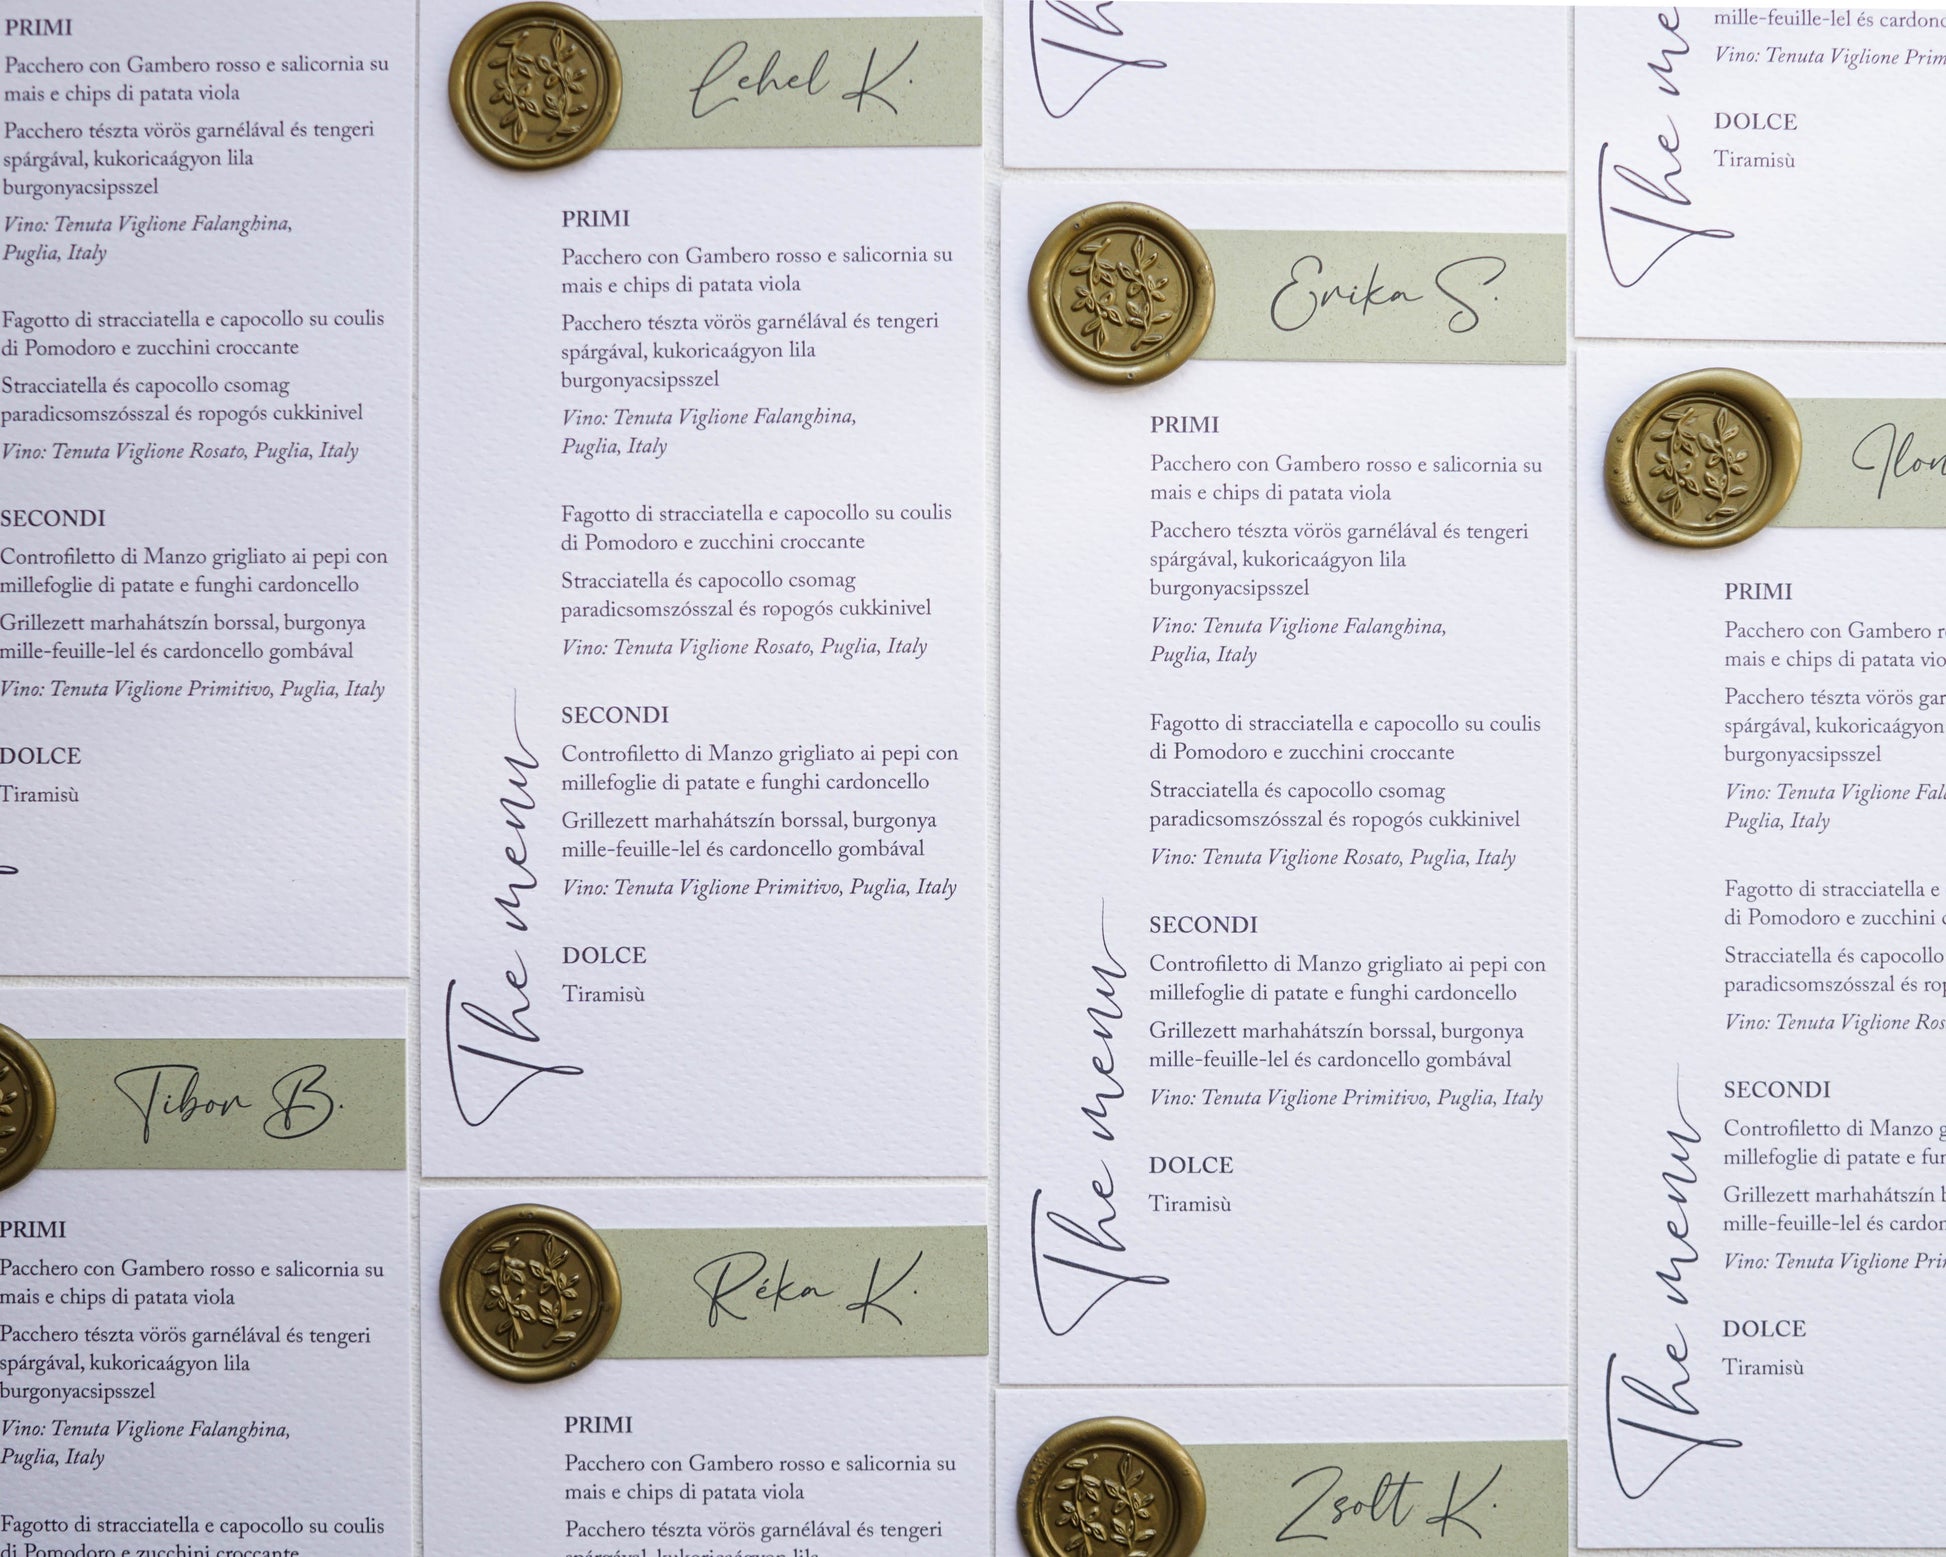 PRIMI
Pacchero con Gambero rosso e salicornia su
mais e chips di patata viola
Pacchero tészta vörös garnélával és tengeri
spárgával, kukoricaágyon lila
burgonyacsipsszel
Vino: Tenuta Viglione Falanghina,
Puglia, Italy
Fagotto di stracciatella e capocollo su coulis
di Pomodoro e zucchini croccante
Stracciatella és capocollo csomag
paradicsomszósszal és ropogós cukkinivel
Vino: Tenuta Viglione Rosato, Puglia, Italy
SECONDI
Controfiletto di Manzo grigliato ai pepi con
millefoglie di patate e funghi cardoncello
Grillezett marhahátszín borssal, burgonya
mille-feuille-lel és cardoncello gombával
Vino: Tenuta Viglione Primitivo, Puglia, Italy
DOLCE
Tiramisù
Tibor B.
PRIMI
Pacchero con Gambero rosso e salicornia su
mais e chips di patata viola
Pacchero tészta vörös garnélával és tengeri
spárgával, kukoricaágyon lila
burgonyacsipsszel
Vino: Tenuta Viglione Falanghina,
Puglia, Italy
Fagotto di stracciatella e capocollo su coulis
di Pomodoro e zucchini croccante
Lehel K.
PRIMI
Pacchero con Gambero rosso e salicornia su
mais e chips di patata viola
Pacchero tészta vörös garnélával és tengeri
spárgával, kukoricaágyon lila
burgonyacsipsszel
Vino: Tenuta Viglione Falanghina,
Puglia, Italy
Fagotto di stracciatella e capocollo su coulis
di Pomodoro e zucchini croccante
Stracciatella és capocollo csomag
paradicsomszósszal és ropogós cukkinivel
Vino: Tenuta Viglione Rosato, Puglia, Italy
SECONDI
Controfiletto di Manzo grigliato ai pepi con
millefoglie di patate e funghi cardoncello
Grillezett marhahátszín borssal, burgonya
mille-feuille-lel és cardoncello gombával
Vino: Tenuta Viglione Primitivo, Puglia, Italy
DOLCE
Tiramisù
The menu
Réka K.
PRIMI
Pacchero con Gambero rosso e salicornia su
mais e chips di patata viola
Pacchero tészta vörös garnélával és tengeri
spárgával, kukoricaágyon lila
Th
Erika S.
PRIMI
Pacchero con Gambero rosso e salicornia su
mais e chips di patata viola
Pacchero tészta vörös garnélával és tengeri
spárgával, kukoricaágyon lila
burgonyacsipsszel
Vino: Tenuta Viglione Falanghina,
Puglia, Italy
Fagotto di stracciatella e capocollo su coulis
di Pomodoro e zucchini croccante
Stracciatella és capocollo csomag
paradicsomszósszal és ropogós cukkinivel
Vino: Tenuta Viglione Rosato, Puglia, Italy
SECONDI
Controfiletto di Manzo grigliato ai pepi con
millefoglie di patate e funghi cardoncello
Grillezett marhahátszín borssal, burgonya
mille-feuille-lel és cardoncello gombával
Vino: Tenuta Viglione Primitivo, Puglia, Italy
DOLCE
Tiramisù
The menu
Zsolt K.
mille-feuille-lel és cardonc
Vino: Tenuta Viglione Prim
DOLCE
Tiramisù
The me
Ilon
PRIMI
Pacchero con Gambero r
mais e chips di patata vio
Pacchero tészta vörös gar
spárgával, kukoricaágyon
burgonyacsipsszel
Vino: Tenuta Viglione Fal
Puglia, Italy
Fagotto di stracciatella e
di Pomodoro e zucchini c
Stracciatella és capocollo
paradicsomszósszal és rop
Vino: Tenuta Viglione Ros
SECONDI
Controfiletto di Manzo g
millefoglie di patate e fun
Grillezett marhahátszín b
mille-feuille-lel és cardon
Vino: Tenuta Viglione Pri
DOLCE
Tiramisù
The menu